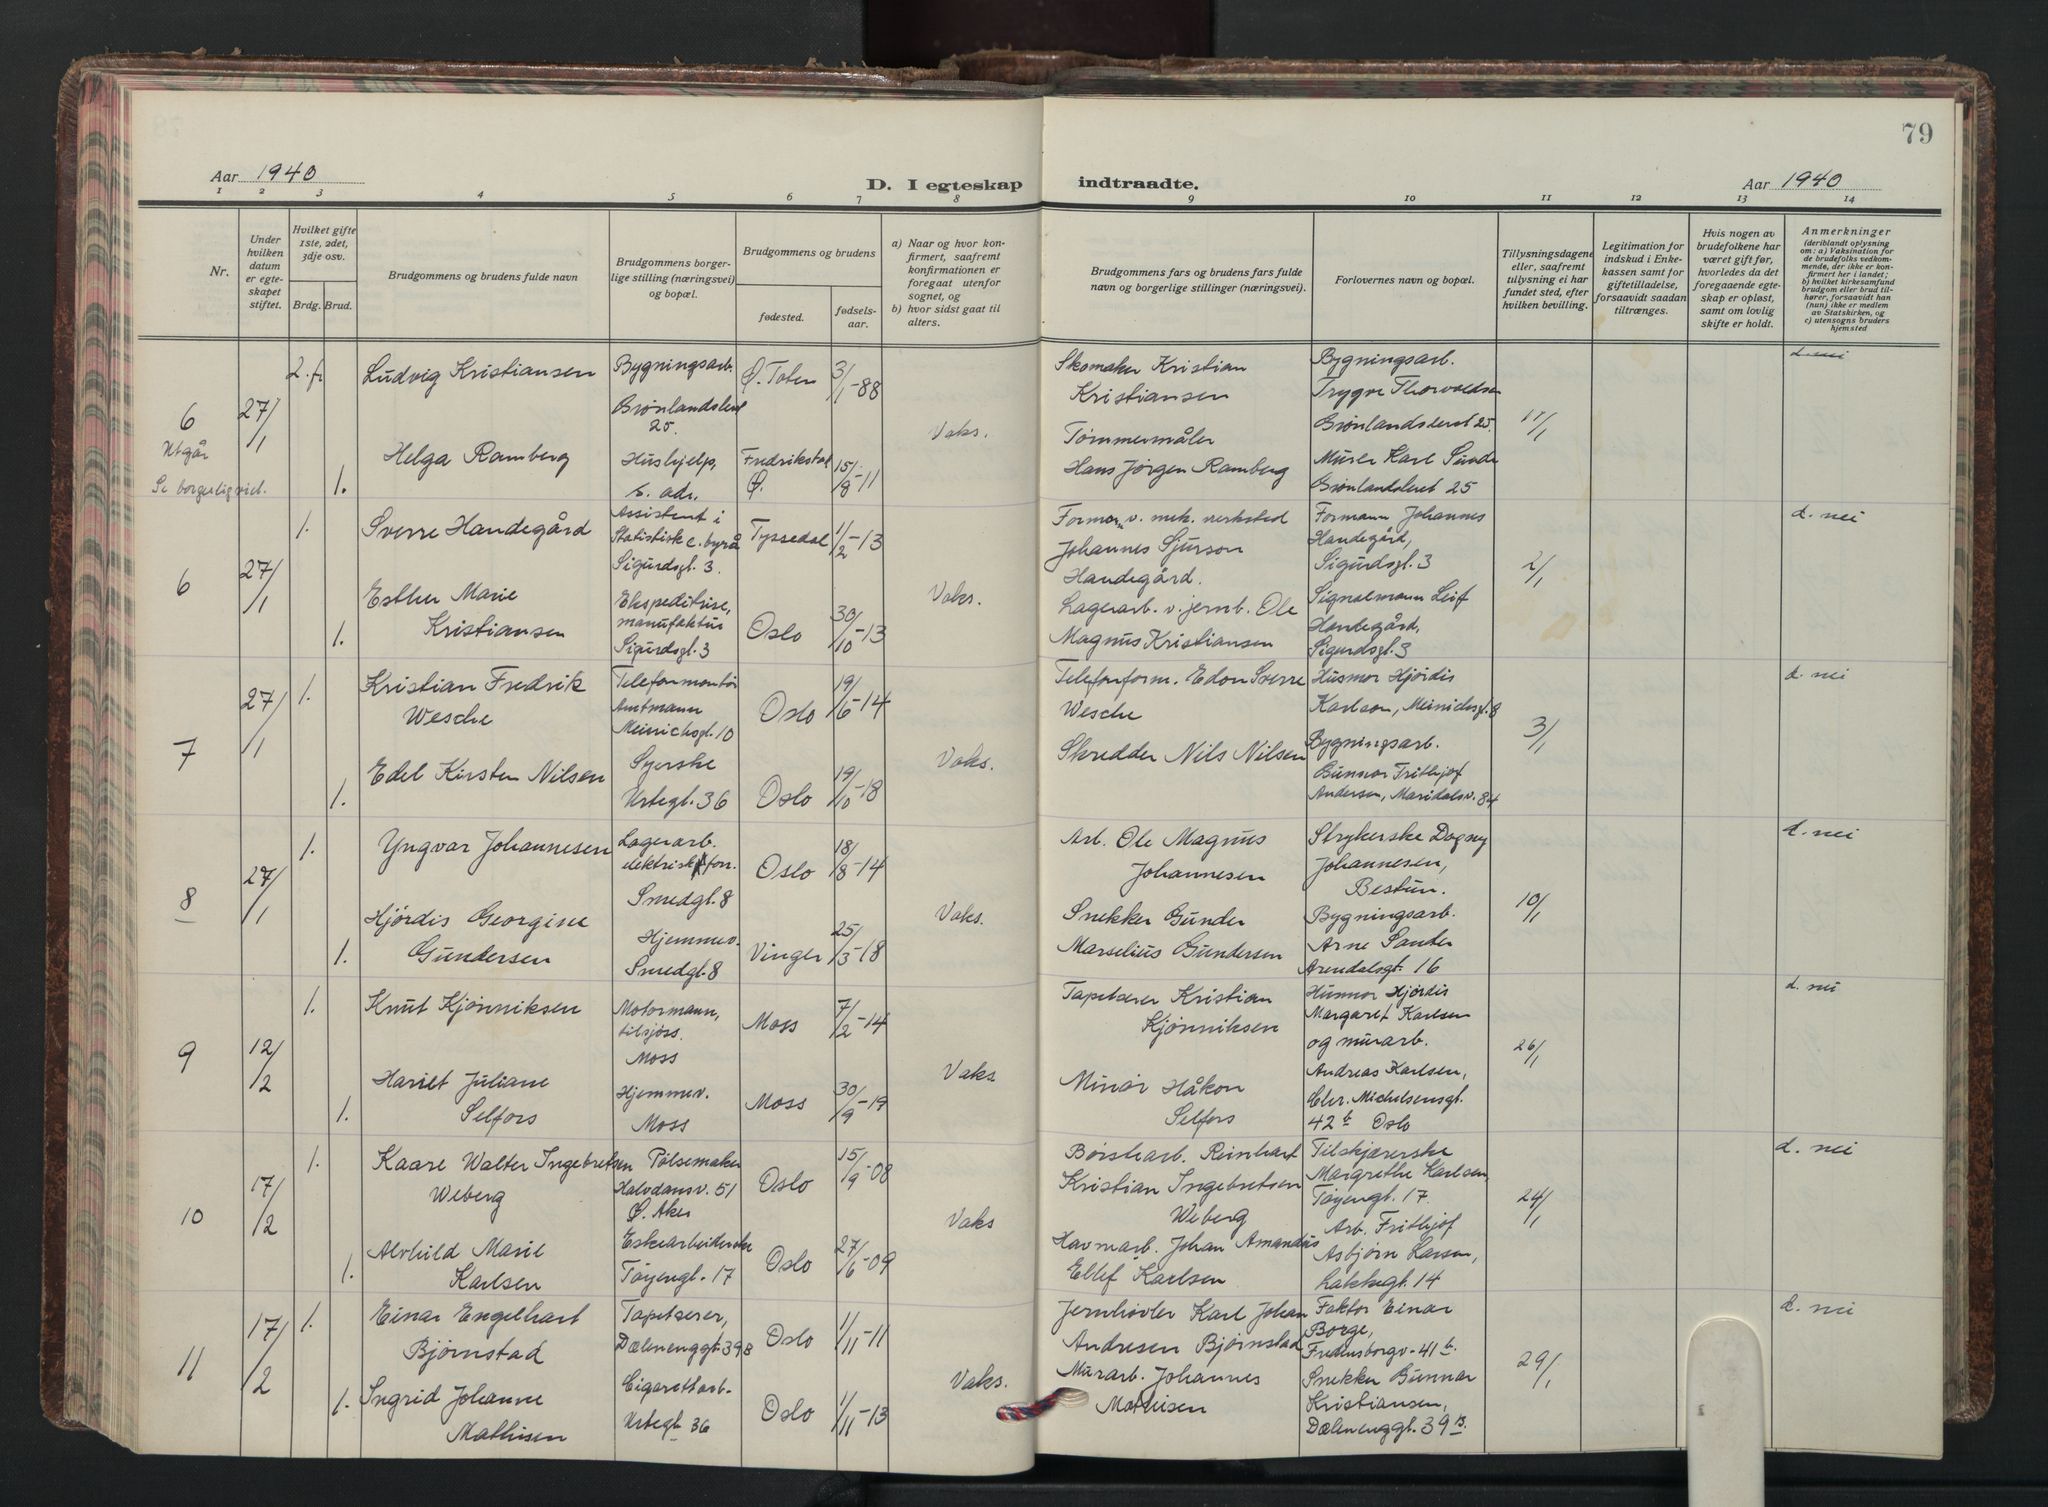 79
Aar 1940
D. I egteskap indtraadte.
Aar 1940
1 2 3 4 5 6 7 8 9 10 11 12 13 14
Nr.
Under hvilken datum er egteskapet stiftet.
Hvilket gifte 1ste, 2det, 3dje osv.
Brdg. Brud.
Brudgommens og brudens fulde navn
Brudgommens borgerlige stilling (næringsvei) og bopæl.
Brudgommens og brudens
fødested.
fødselsaar.
a) Naar og hvor konfirmert, saafremt konfirmationen er foregaat utenfor sognet, og
b) hvor sidst gaat til alters.
Brudgommens fars og brudens fars fulde navn og borgerlige stillinger (næringsvei).
Forlovernes navn og bopæl.
Tillysningsdagene eller, saafremt tillysning ei har fundet sted, efter hvilken bevilling.
Legitimation for indskud i Enkekassen samt for giftetilladelse, forsaavidt saadan tiltrænges.
Hvis nogen av brudefolkene har været gift før, hvorledes da det foregaaende egteskap er opløst, samt om lovlig skifte er holdt.
Anmerkninger
(deriblandt oplysning om: a) Vaksination for de brudefolks vedkommende, der ikke er konfirmert her i landet; b) hvilket kirkesamfund brudgom eller brud tilhører, forsaavidt han (hun) ikke er medlem av Statskirken, og c) utensogns bruders hjemsted
6
Utgår
Se borgerlig viet.
27/1
2. fr
Ludvig Kristiansen
Bygningsarb.
Grønlandsleret
25.
Ø. Toten
3/1-88
Vaks.
Skomaker Kristian
Kristiansen
Bygningsarb.
Trygve Thorvaldsen
Grønlandsleret 25.
17/1
d. nei
1.
Helga Ramberg
Hushjelp,
s. adr.
Fredrikstad
Ø.
15/8-11
Tømmermåler
Hans Jørgen Ramberg
Murer Karl Sunde
Grønlandsleret 25
6
27/1
1.
Sverre Handegård
Assistent i
Statistiske c. byrå
Sigurdsgt. 3.
Tyssedal
1/2-13
Vaks.
Former v. mek. verksted
Johannes Sjurson
Handegård.
Formann Johannes
Handegård,
Sigurdsgt. 3
2/1
d. nei
1.
Esther Marie
Kristiansen
Ekspeditrise,
manufaktur
Sigurdsgt. 3
Oslo
30/10-13
Lagerarb. v. jernb. Ole
Magnus Kristiansen
Signalmann Leif
Handegård,
Sigurdsgt. 3
7
27/1
1.
Kristian Fredrik
Wesche
Telefonmontør
Amtmann
Meinichsgt. 10
Oslo
19/6-14
Vaks.
Telefonform. Edon Sverre
Wesche
Husmor Hjørdis
Karlson, Meinichsgt. 8
3/1
d. nei
1.
Edel Kirsten Nilsen
Syerske
Urtegt. 36
Oslo
19/10-18
Skredder Nils Nilsen
Bygningsarb.
Gunnar Frithjof
Andersen, Maridalsv. 84
8
27/1
1.
Yngvar Johannesen
Lagerarb.
elektrisk forr.
Smedgt. 8
Oslo
18/8-14
Vaks.
Arb. Ole Magnus
Johannesen
Strykerske Dagny
Johannesen,
Bestun.
10/1
d. nei
1.
Hjørdis Georgine
Gundersen
Hjemmev.
Smedgt. 8
Vinger
25/3-18
Snekker Gunder
Marselius Gundersen
Bygningsarb.
Arne Sander
Arendalsgt. 16
9
12/2
1.
Knut Kjønniksen
Motormann,
tilsjøs.
Moss
Moss
7/2-14
Vaks
Tapetserer Kristian
Kjønniksen
Husmor Hjørdis
Margaret Karlsen
og murarb.
Andreas Karlsen,
Chr. Michelsensgt.
42 b Oslo
26/1
d. nei
1.
Hariet Juliane
Selfors
Hjemmev.
Moss
Moss
30/9-19
Minør Håkon
Selfors
10
17/2
1.
Kaare Walter Ingebretsen
Weberg
Pølsemaker
Halvdansv. 51
Ø. Aker
Oslo
15/9-08
Vaks
Børstearb. Reinhart
Kristian Ingebretsen
Weberg
Tilskjærerske
Margrethe Karlsen,
Tøyengt. 17.
24/1
d. nei
1.
Alvhild Marie
Karlsen
Eskearbeiderske
Tøyengt. 17
Oslo
27/6-09
Havnarb. Johan Amandus
Ellef Karlsen
Arb. Frithjof
Asbjørn Larsen,
Lakkegt. 14
11
17/2
1.
Einar Engelhart
Bjørnstad
Tapetserer,
Dælenenggt. 39 B
Oslo
1/11-11
Vaks.
Jernhøvler Karl Johan
Andresen Bjørnstad
Faktor Einar
Borge,
Fredensborgv. 41 b.
29/1
d. nei
1.
Ingrid Johanne
Mathisen
Cigarettarb.
Urtegt. 36
Oslo
1/11-13
Murarb. Johannes
Mathisen
Snekker Gunnar
Kristiansen,
Dælenenggt. 39 B.